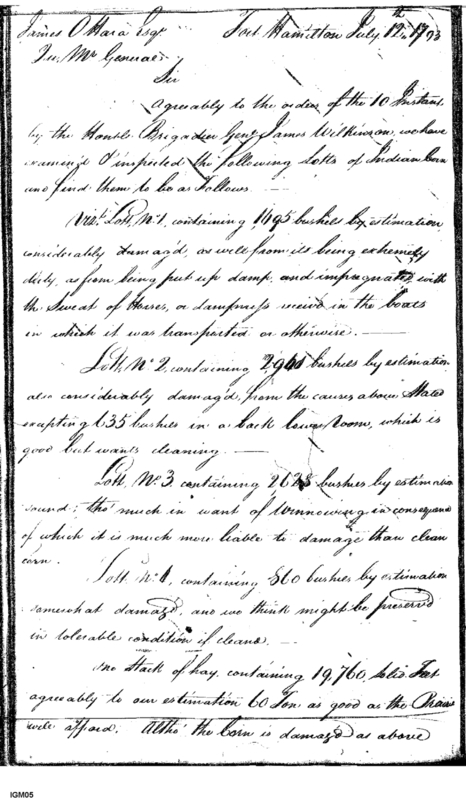 James O Hara Esqr Fort Hamilton July 12th 1793
Qu. Mr General
Sir
Agreeably to the order of the 10 Instant
by the Honble Brigadier Genl James Wilkinson, we have
examined & inspected the following Lotts of Indian Corn
and find them to be as follows
Vizt Lott, No 1, containing 1495 bushels by estimation
considerably damag'd, as well from its being extremely
dirty, as from being put up damp, and impregnated with
the Sweat of Horses, or dampness receiv'd in the boats
in which it was transported or otherwise. —
Lott, No 2, containing bushels by estimation
also considerably damag'd, from the causes above Stated
excepting 635 bushels in a back lower room, which is
good but wants cleaning —
Lott, No 3 containing bushels by estimation
sound; tho' much in want of Winnowing in consequence
of which it is much more liable to damage than clean
corn.
Lott. No containing bushels by estimation
somewhat damag'd, and we think might be preserv'd
in tolerable condition if cleand —
One Stack of hay, containing 19,760 Solid Feet
agreeably to our estimation 60 Ton as good as the Prairie
will afford; Altho' the Corn is damag'd as above
IGM05